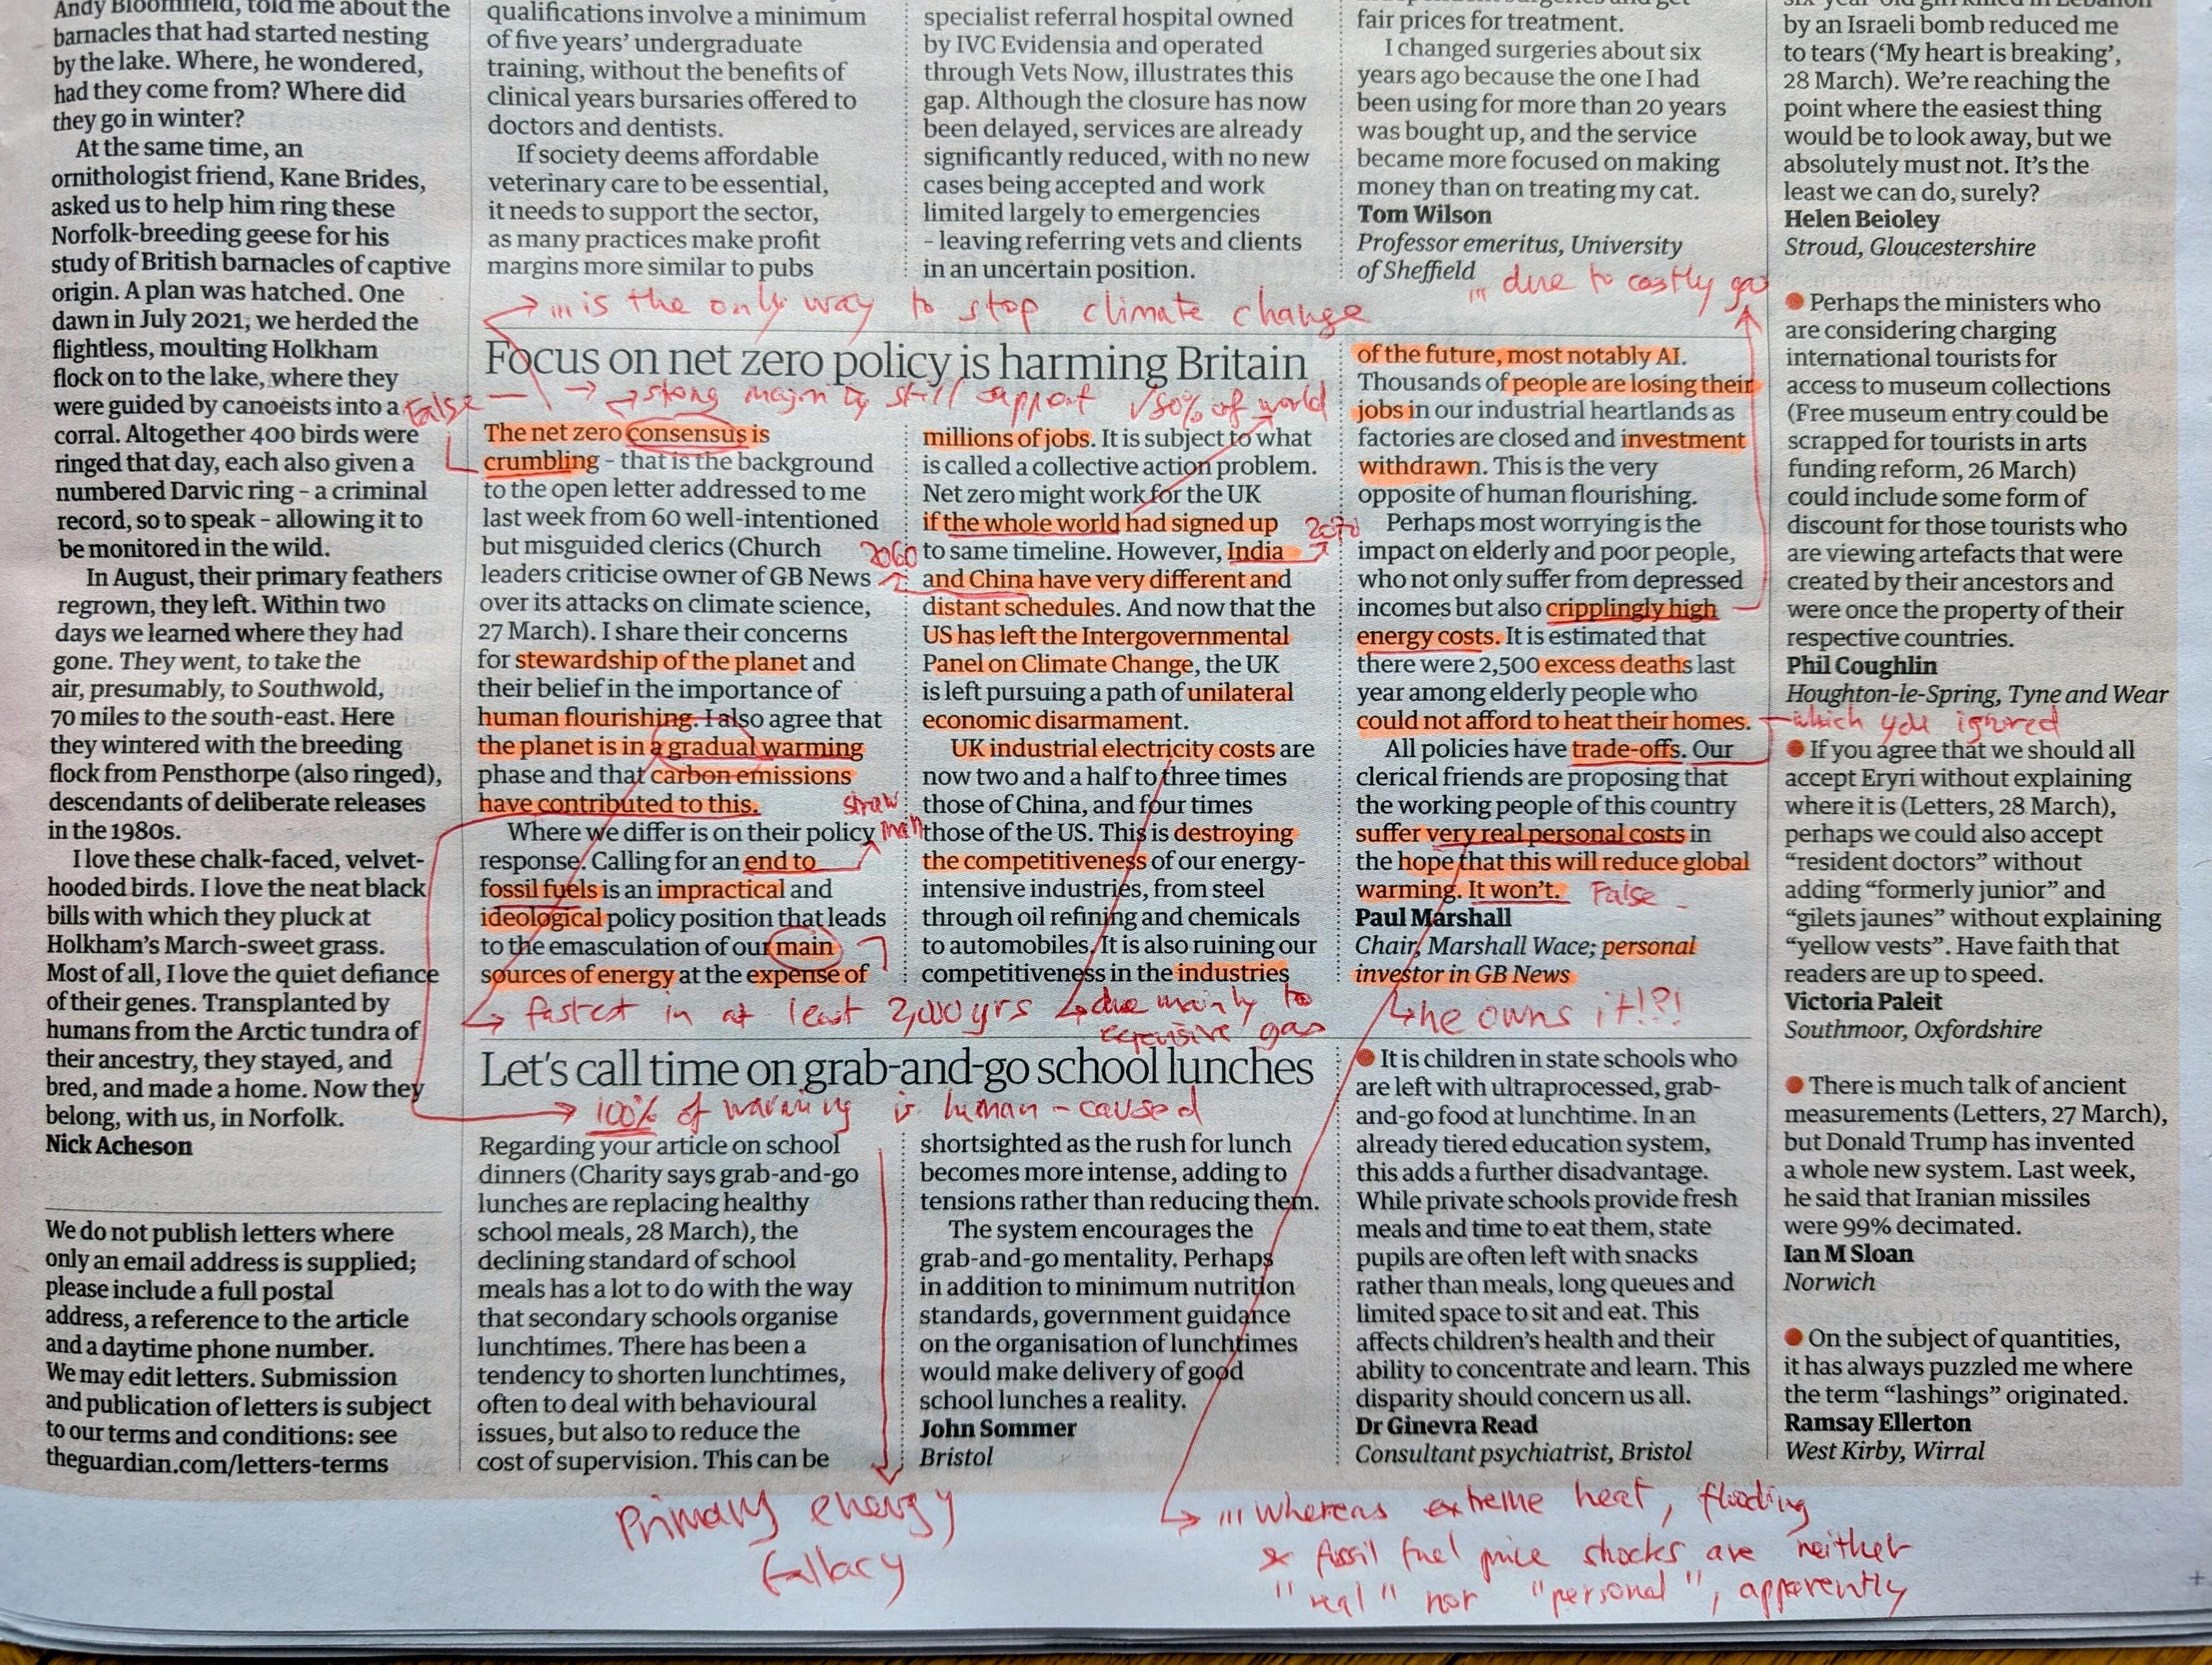 Andy Bloomfield, told me about the
barnacles that had started nesting
by the lake. Where, he wondered,
had they come from? Where did
they go in winter?
At the same time, an
ornithologist friend, Kane Brides,
asked us to help him ring these
Norfolk-breeding geese for his
study of British barnacles of captive
origin. A plan was hatched. One
dawn in July 2021, we herded the
flightless, moulting Holkham
flock on to the lake, where they
were guided by canoeists into a
corral. Altogether 400 birds were
ringed that day, each also given a
numbered Darvic ring – a criminal
record, so to speak – allowing it to
be monitored in the wild.
In August, their primary feathers
regrown, they left. Within two
days we learned where they had
gone. They went, to take the
air, presumably, to Southwold,
70 miles to the south-east. Here
they wintered with the breeding
flock from Pensthorpe (also ringed),
descendants of deliberate releases
in the 1980s.
I love these chalk-faced, velvet-
hooded birds. I love the neat black
bills with which they pluck at
Holkham's March-sweet grass.
Most of all, I love the quiet defiance
of their genes. Transplanted by
humans from the Arctic tundra of
their ancestry, they stayed, and
bred, and made a home. Now they
belong, with us, in Norfolk.
Nick Acheson
We do not publish letters where
only an email address is supplied;
please include a full postal
address, a reference to the article
and a daytime phone number.
We may edit letters. Submission
and publication of letters is subject
to our terms and conditions: see
theguardian.com/letters-terms
qualifications involve a minimum
of five years' undergraduate
training, without the benefits of
clinical years bursaries offered to
doctors and dentists.
If society deems affordable
veterinary care to be essential,
it needs to support the sector,
as many practices make profit
margins more similar to pubs
specialist referral hospital owned
by IVC Evidensia and operated
through Vets Now, illustrates this
gap. Although the closure has now
been delayed, services are already
significantly reduced, with no new
cases being accepted and work
limited largely to emergencies
– leaving referring vets and clients
in an uncertain position.
fair prices for treatment.
I changed surgeries about six
years ago because the one I had
been using for more than 20 years
was bought up, and the service
became more focused on making
money than on treating my cat.
Tom Wilson
Professor emeritus, University
of Sheffield
... due to costly gas
... is the only way to stop climate change
Focus on net zero policy is harming Britain
False
strong majority still support
√80% of world
The net zero consensus is
crumbling – that is the background
to the open letter addressed to me
last week from 60 well-intentioned
but misguided clerics (Church
leaders criticise owner of GB News
over its attacks on climate science,
27 March). I share their concerns
for stewardship of the planet and
their belief in the importance of
human flourishing. I also agree that
the planet is in a gradual warming
phase and that carbon emissions
have contributed to this.
Where we differ is on their policy
response. Calling for an end to
fossil fuels is an impractical and
ideological policy position that leads
to the emasculation of our main
sources of energy at the expense of
straw
man
2060
2070
millions of jobs. It is subject to what
is called a collective action problem.
Net zero might work for the UK
if the whole world had signed up
to same timeline. However, India
and China have very different and
distant schedules. And now that the
US has left the Intergovernmental
Panel on Climate Change, the UK
is left pursuing a path of unilateral
economic disarmament.
UK industrial electricity costs are
now two and a half to three times
those of China, and four times
those of the US. This is destroying
the competitiveness of our energy-
intensive industries, from steel
through oil refining and chemicals
to automobiles. It is also ruining our
competitiveness in the industries
of the future, most notably AI.
Thousands of people are losing their
jobs in our industrial heartlands as
factories are closed and investment
withdrawn. This is the very
opposite of human flourishing.
Perhaps most worrying is the
impact on elderly and poor people,
who not only suffer from depressed
incomes but also cripplingly high
energy costs. It is estimated that
there were 2,500 excess deaths last
year among elderly people who
could not afford to heat their homes.
All policies have trade-offs. Our
clerical friends are proposing that
the working people of this country
suffer very real personal costs in
the hope that this will reduce global
warming. It won't.
Paul Marshall
Chair, Marshall Wace; personal
investor in GB News
which you ignored
False
fastest in at least 2,000 yrs
due mainly to
expensive gas
he owns it!?!
Let's call time on grab-and-go school lunches
100% of warming is human-caused
Regarding your article on school
dinners (Charity says grab-and-go
lunches are replacing healthy
school meals, 28 March), the
declining standard of school
meals has a lot to do with the way
that secondary schools organise
lunchtimes. There has been a
tendency to shorten lunchtimes,
often to deal with behavioural
issues, but also to reduce the
cost of supervision. This can be
shortsighted as the rush for lunch
becomes more intense, adding to
tensions rather than reducing them.
The system encourages the
grab-and-go mentality. Perhaps
in addition to minimum nutrition
standards, government guidance
on the organisation of lunchtimes
would make delivery of good
school lunches a reality.
John Sommer
Bristol
It is children in state schools who
are left with ultraprocessed, grab-
and-go food at lunchtime. In an
already tiered education system,
this adds a further disadvantage.
While private schools provide fresh
meals and time to eat them, state
pupils are often left with snacks
rather than meals, long queues and
limited space to sit and eat. This
affects children's health and their
ability to concentrate and learn. This
disparity should concern us all.
Dr Ginevra Read
Consultant psychiatrist, Bristol
by an Israeli bomb reduced me
to tears ('My heart is breaking',
28 March). We're reaching the
point where the easiest thing
would be to look away, but we
absolutely must not. It's the
least we can do, surely?
Helen Beioley
Stroud, Gloucestershire
Perhaps the ministers who
are considering charging
international tourists for
access to museum collections
(Free museum entry could be
scrapped for tourists in arts
funding reform, 26 March)
could include some form of
discount for those tourists who
are viewing artefacts that were
created by their ancestors and
were once the property of their
respective countries.
Phil Coughlin
Houghton-le-Spring, Tyne and Wear
If you agree that we should all
accept Eryri without explaining
where it is (Letters, 28 March),
perhaps we could also accept
"resident doctors" without
adding "formerly junior" and
"gilets jaunes" without explaining
"yellow vests". Have faith that
readers are up to speed.
Victoria Paleit
Southmoor, Oxfordshire
There is much talk of ancient
measurements (Letters, 27 March),
but Donald Trump has invented
a whole new system. Last week,
he said that Iranian missiles
were 99% decimated.
Ian M Sloan
Norwich
On the subject of quantities,
it has always puzzled me where
the term "lashings" originated.
Ramsay Ellerton
West Kirby, Wirral
Primary energy
fallacy
... whereas extreme heat, flooding
& fossil fuel price shocks are neither
"real" nor "personal", apparently